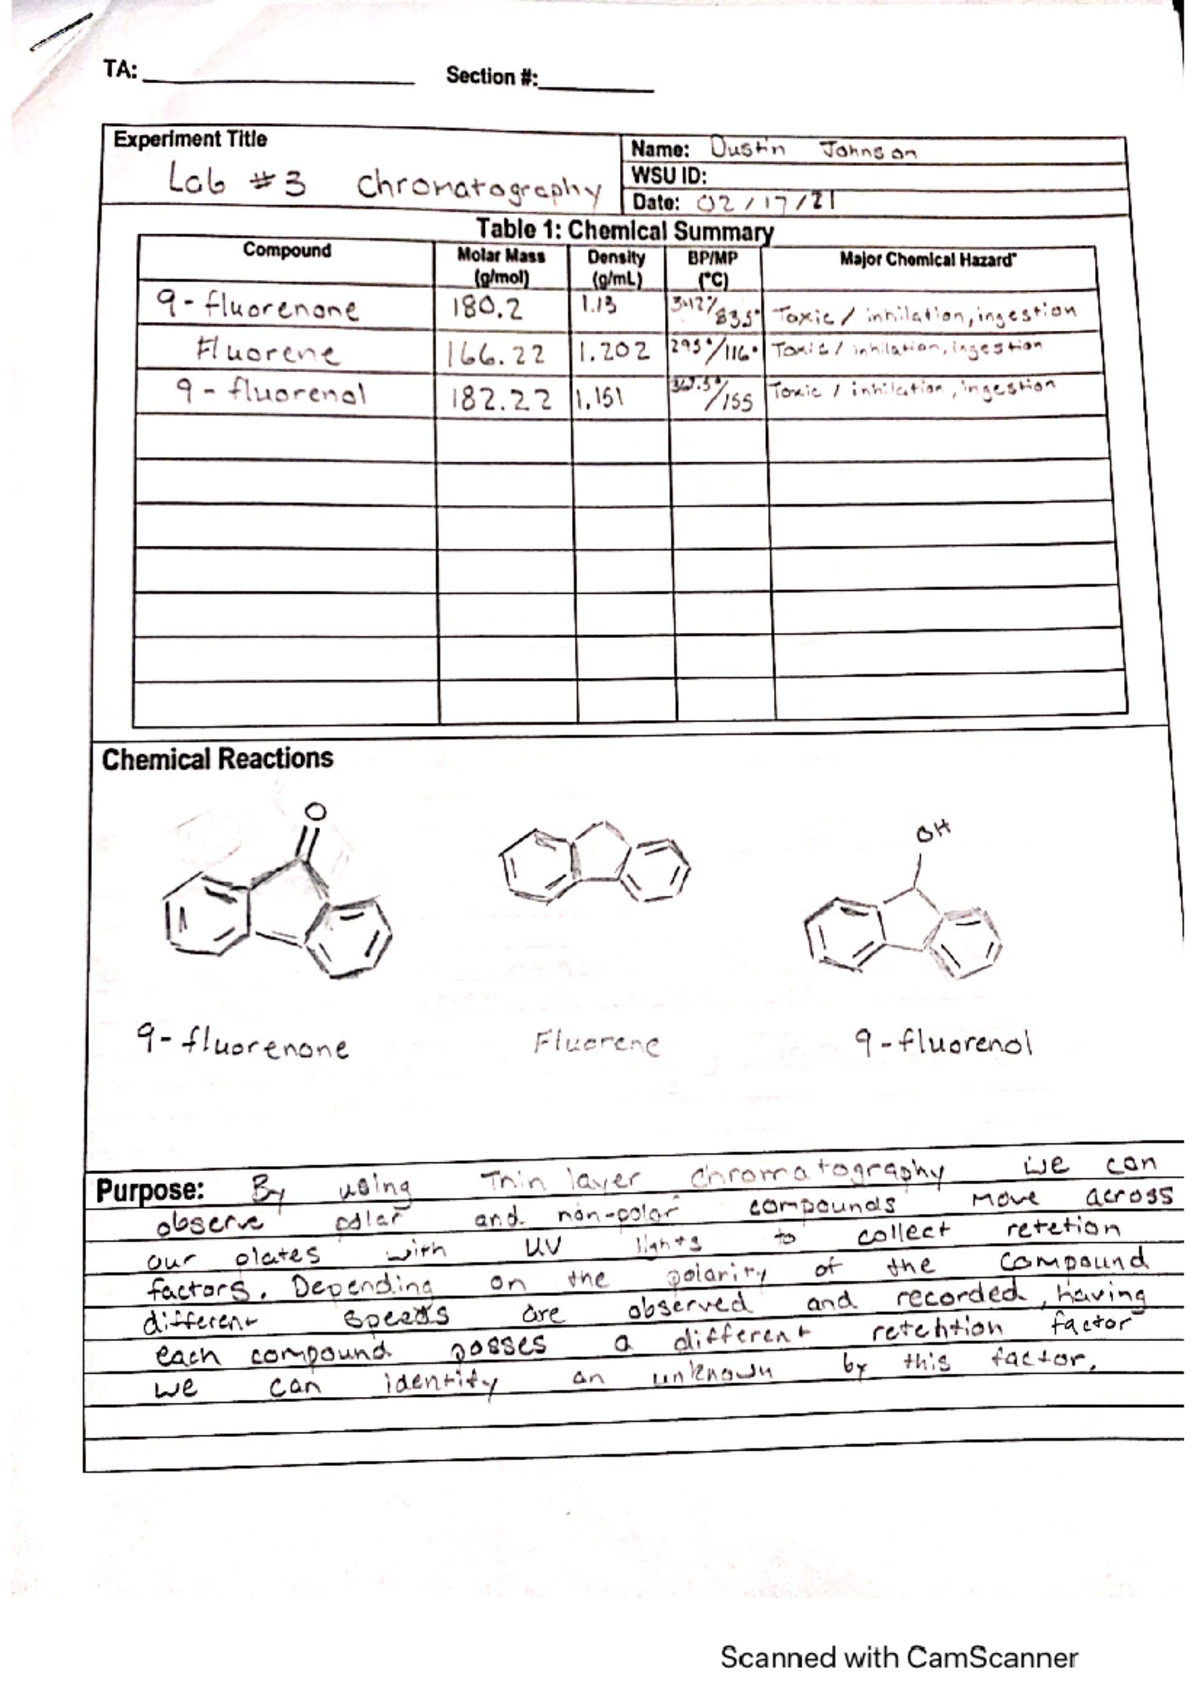 TA: Section #:
Experiment Title
Lab #3 Chromatography
Name: Dustin Johnson
WSU ID:
Date: 02/17/21
Table 1: Chemical Summary
Compound Molar Mass (g/mol) Density (g/mL) BP/MP (°C) Major Chemical Hazard*
9-fluorenone 180.2 1.13 342°/83.5° Toxic / inhilation, ingestion
Fluorene 166.22 1.202 295°/116° Toxic / inhilation, ingestion
9-fluorenol 182.22 1.151 367.5°/155 Toxic / inhilation, ingestion
Chemical Reactions
O
OH
9-fluorenone Fluorene 9-fluorenol
Purpose: By using Thin layer chromatography we can
observe polar and non-polar compounds move across
our plates with UV lights to collect retetion
factors. Depending on the polarity of the compound
different speeds are observed and recorded, having
each compound posses a different retention factor
we can identify an unknown by this factor.
Scanned with CamScanner